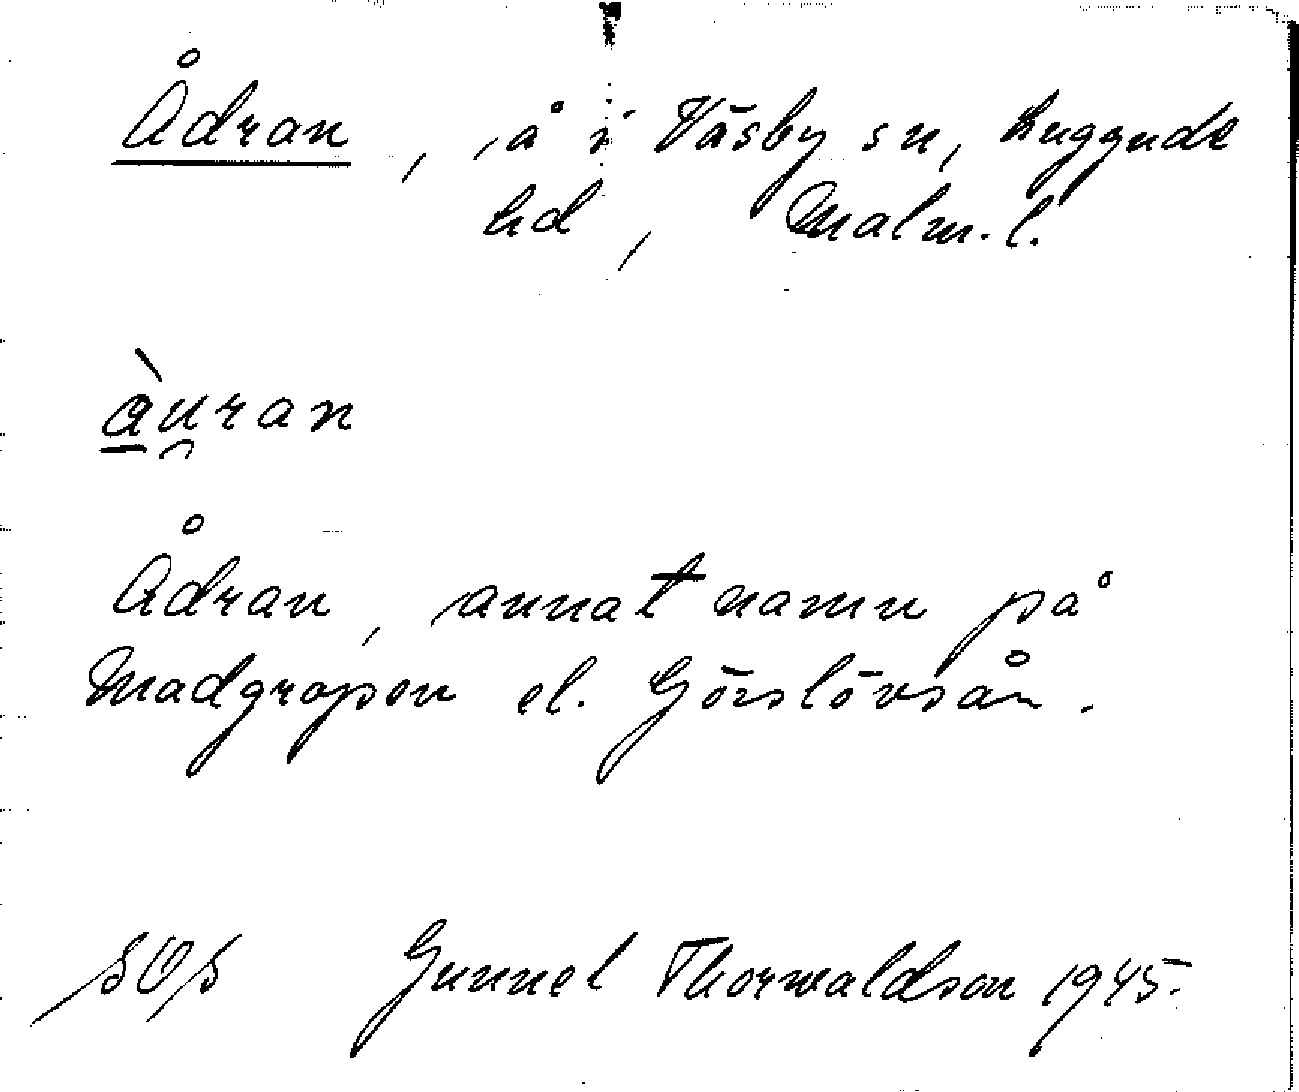 Ådran, å i Väsby sn, Luggude
hd, Malm.l.
àu̯ran
Ådran, annat namn på
Madgropen el. Görslövsån.
SOS Gunnel Thorwaldson 1945.